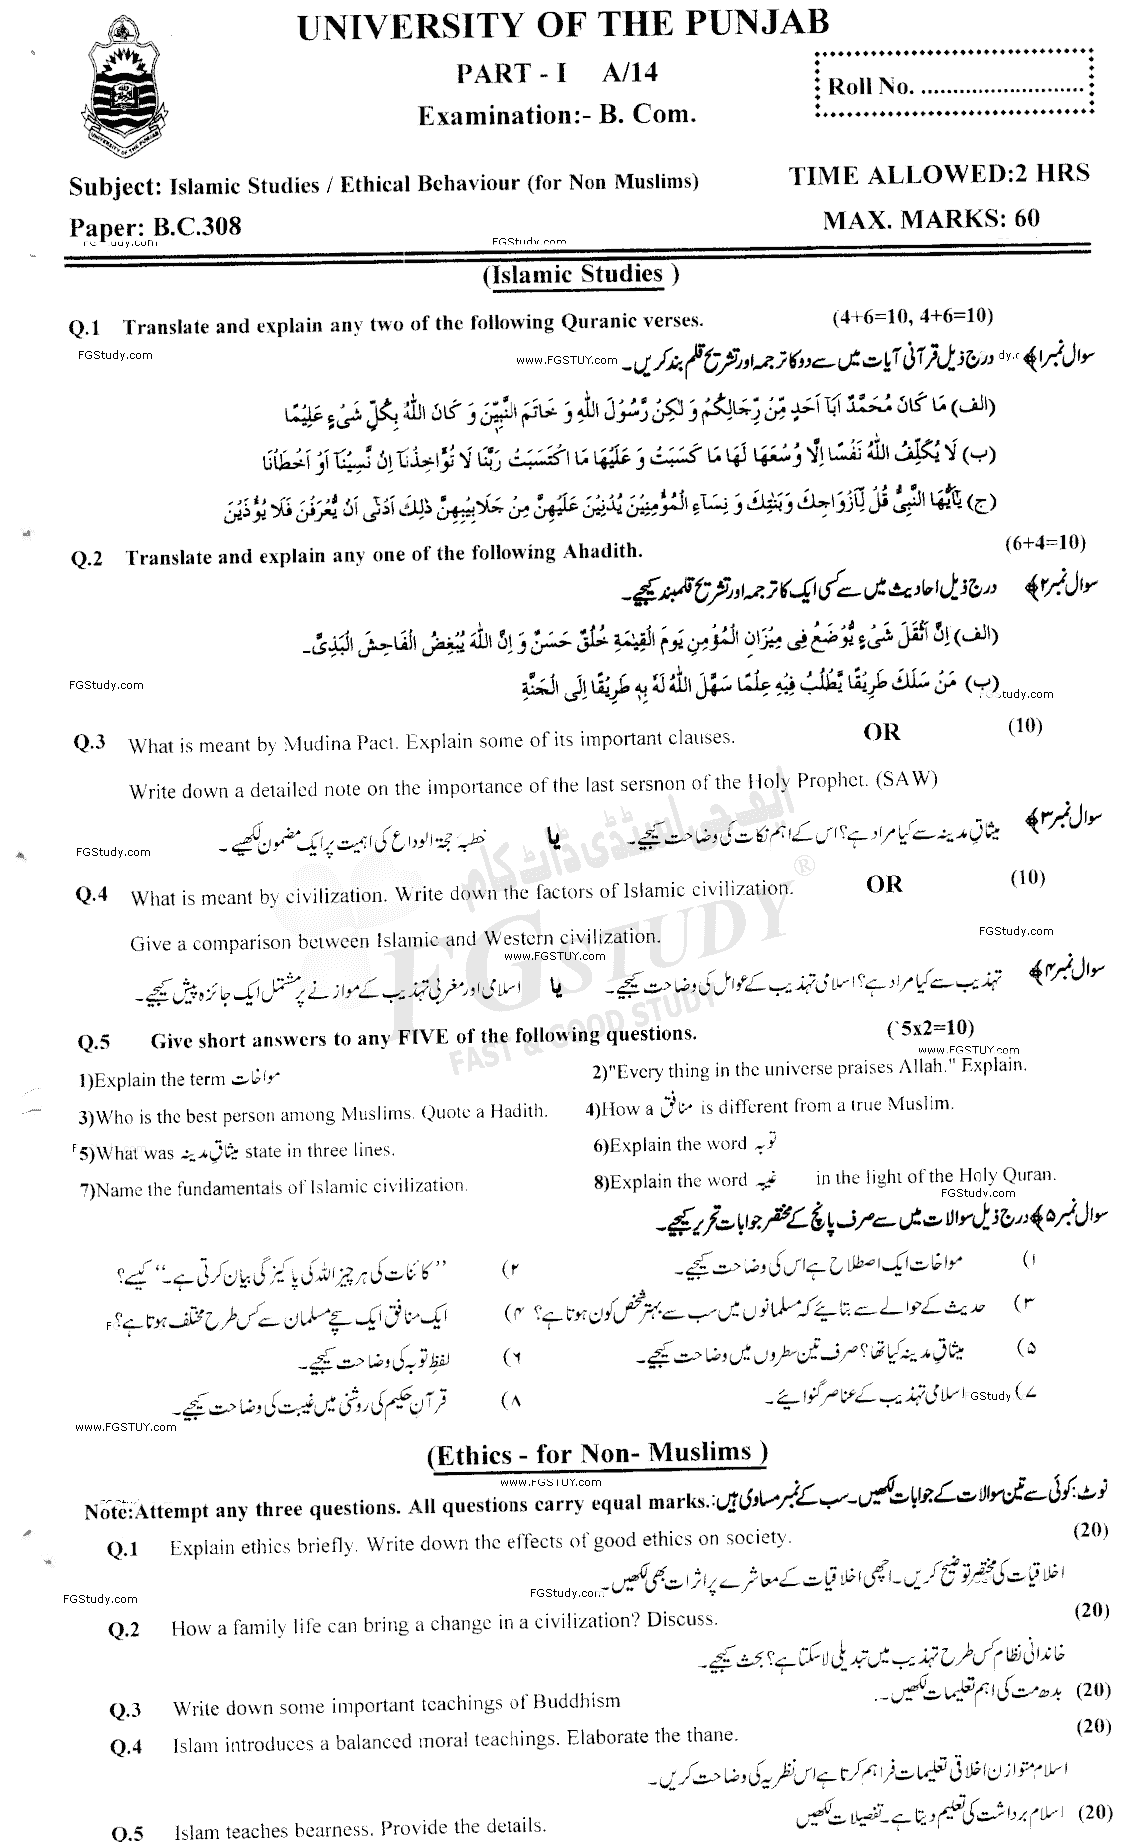 UNIVERSITY OF THE PUNJAB
PART - I A/14
Roll No. ..........................
Examination:- B. Com.
Subject: Islamic Studies / Ethical Behaviour (for Non Muslims)
TIME ALLOWED:2 HRS
Paper: B.C.308
MAX. MARKS: 60
FGStudy.com
(Islamic Studies )
Q.1 Translate and explain any two of the following Quranic verses. (4+6=10, 4+6=10)
FGStudy.com
www.FGSTUY.com
سوال نمبر۱﴾ درج ذیل قرآنی آیات میں سے دو کا ترجمہ اور تشریح قلم بند کریں۔
(الف) مَا كَانَ مُحَمَّدٌ اَبَآ اَحَدٍ مِّنْ رِّجَالِكُمْ وَ لٰكِنْ رَّسُوْلَ اللّٰهِ وَ خَاتَمَ النَّبِيّٖنَ وَ كَانَ اللّٰهُ بِكُلِّ شَيْءٍ عَلِيْمًا
(ب) لَا يُكَلِّفُ اللّٰهُ نَفْسًا اِلَّا وُسْعَهَا لَهَا مَا كَسَبَتْ وَ عَلَيْهَا مَا اكْتَسَبَتْ رَبَّنَا لَا تُؤَاخِذْنَآ اِنْ نَّسِيْنَآ اَوْ اَخْطَاْنَا
(ج) يٰٓاَيُّهَا النَّبِيُّ قُلْ لِّاَزْوَاجِكَ وَبَنٰتِكَ وَ نِسَآءِ الْمُؤْمِنِيْنَ يُدْنِيْنَ عَلَيْهِنَّ مِنْ جَلَابِيْبِهِنَّ ذٰلِكَ اَدْنٰٓى اَنْ يُّعْرَفْنَ فَلَا يُؤْذَيْنَ
Q.2 Translate and explain any one of the following Ahadith. (6+4=10)
سوال نمبر۲﴾ درج ذیل احادیث میں سے کسی ایک کا ترجمہ اور تشریح قلمبند کیجیے۔
(الف) اِنَّ اَثْقَلَ شَيْءٍ يُّوْضَعُ فِي مِيْزَانِ الْمُؤْمِنِ يَوْمَ الْقِيٰمَةِ خُلُقٌ حَسَنٌ وَ اِنَّ اللّٰهَ يُبْغِضُ الْفَاحِشَ الْبَذِيَّ۔
FGStudy.com
(ب) مَنْ سَلَكَ طَرِيْقًا يَّطْلُبُ فِيْهِ عِلْمًا سَهَّلَ اللّٰهُ لَهٗ بِهٖ طَرِيْقًا اِلَى الْجَنَّةِ
Q.3 What is meant by Mudina Pact. Explain some of its important clauses. OR (10)
Write down a detailed note on the importance of the last sersnon of the Holy Prophet. (SAW)
سوال نمبر۳﴾ میثاقِ مدینہ سے کیا مراد ہے؟ اس کے اہم نکات کی وضاحت کیجیے۔ یا خطبہ حجۃ الوداع کی اہمیت پر ایک مضمون لکھیے۔
FGStudy.com
ایف جی اسٹڈی ڈاٹ کام
Q.4 What is meant by civilization. Write down the factors of Islamic civilization. OR (10)
Give a comparison between Islamic and Western civilization.
FGStudy.com
www.FGSTUY.com
FGSTUDY ®
FAST & GOOD STUDY
سوال نمبر۴﴾ تہذیب سے کیا مراد ہے؟ اسلامی تہذیب کے عوامل کی وضاحت کیجیے۔ یا اسلامی اور مغربی تہذیب کے موازنے پر مشتمل ایک جائزہ پیش کیجیے۔
Q.5 Give short answers to any FIVE of the following questions. (5x2=10)
www.FGSTUY.com
1)Explain the term مواخات 2)"Every thing in the universe praises Allah." Explain.
3)Who is the best person among Muslims. Quote a Hadith. 4)How a منافق is different from a true Muslim.
5)What was میثاقِ مدینہ state in three lines. 6)Explain the word توبہ
7)Name the fundamentals of Islamic civilization. 8)Explain the word غیبہ in the light of the Holy Quran.
FGStudy.com
سوال نمبر۵﴾ درج ذیل سوالات میں سے صرف پانچ کے مختصر جوابات تحریر کیجیے۔
۱) مواخات ایک اصطلاح ہے اس کی وضاحت کیجیے۔ ۲) ''کائنات کی ہر چیز اللہ کی پاکیزگی بیان کرتی ہے۔'' کیسے؟
۳) حدیث کے حوالے سے بتایئے کہ مسلمانوں میں سب سے بہتر شخص کون ہوتا ہے؟ ۴) ایک منافق ایک سچے مسلمان سے کس طرح مختلف ہوتا ہے؟
۵) میثاقِ مدینہ کیا تھا؟ صرف تین سطروں میں وضاحت کیجیے۔ ۶) لفظِ توبہ کی وضاحت کیجیے۔
۷) اسلامی تہذیب کے عناصر گنوائیے۔ ۸) قرآنِ حکیم کی روشنی میں غیبت کی وضاحت کیجیے۔
www.FGSTUY.com
(Ethics - for Non- Muslims )
www.FGSTUY.com
Note:Attempt any three questions. All questions carry equal marks.: نوٹ: کوئی سے تین سوالات کے جوابات لکھیں۔ سب کے نمبر مساوی ہیں
Q.1 Explain ethics briefly. Write down the effects of good ethics on society. (20)
اخلاقیات کی مختصر توضیح کریں۔ اچھی اخلاقیات کے معاشرے پر اثرات بھی لکھیں۔
FGStudy.com
Q.2 How a family life can bring a change in a civilization? Discuss. (20)
خاندانی نظام کس طرح تہذیب میں تبدیلی لا سکتا ہے؟ بحث کیجیے۔
Q.3 Write down some important teachings of Buddhism بدھ مت کی اہم تعلیمات لکھیں۔ (20)
Q.4 Islam introduces a balanced moral teachings. Elaborate the thane. (20)
اسلام متوازن اخلاقی تعلیمات فراہم کرتا ہے اس نظریہ کی وضاحت کریں۔
Q.5 Islam teaches bearness. Provide the details. اسلام برداشت کی تعلیم دیتا ہے۔ تفصیلات لکھیں (20)